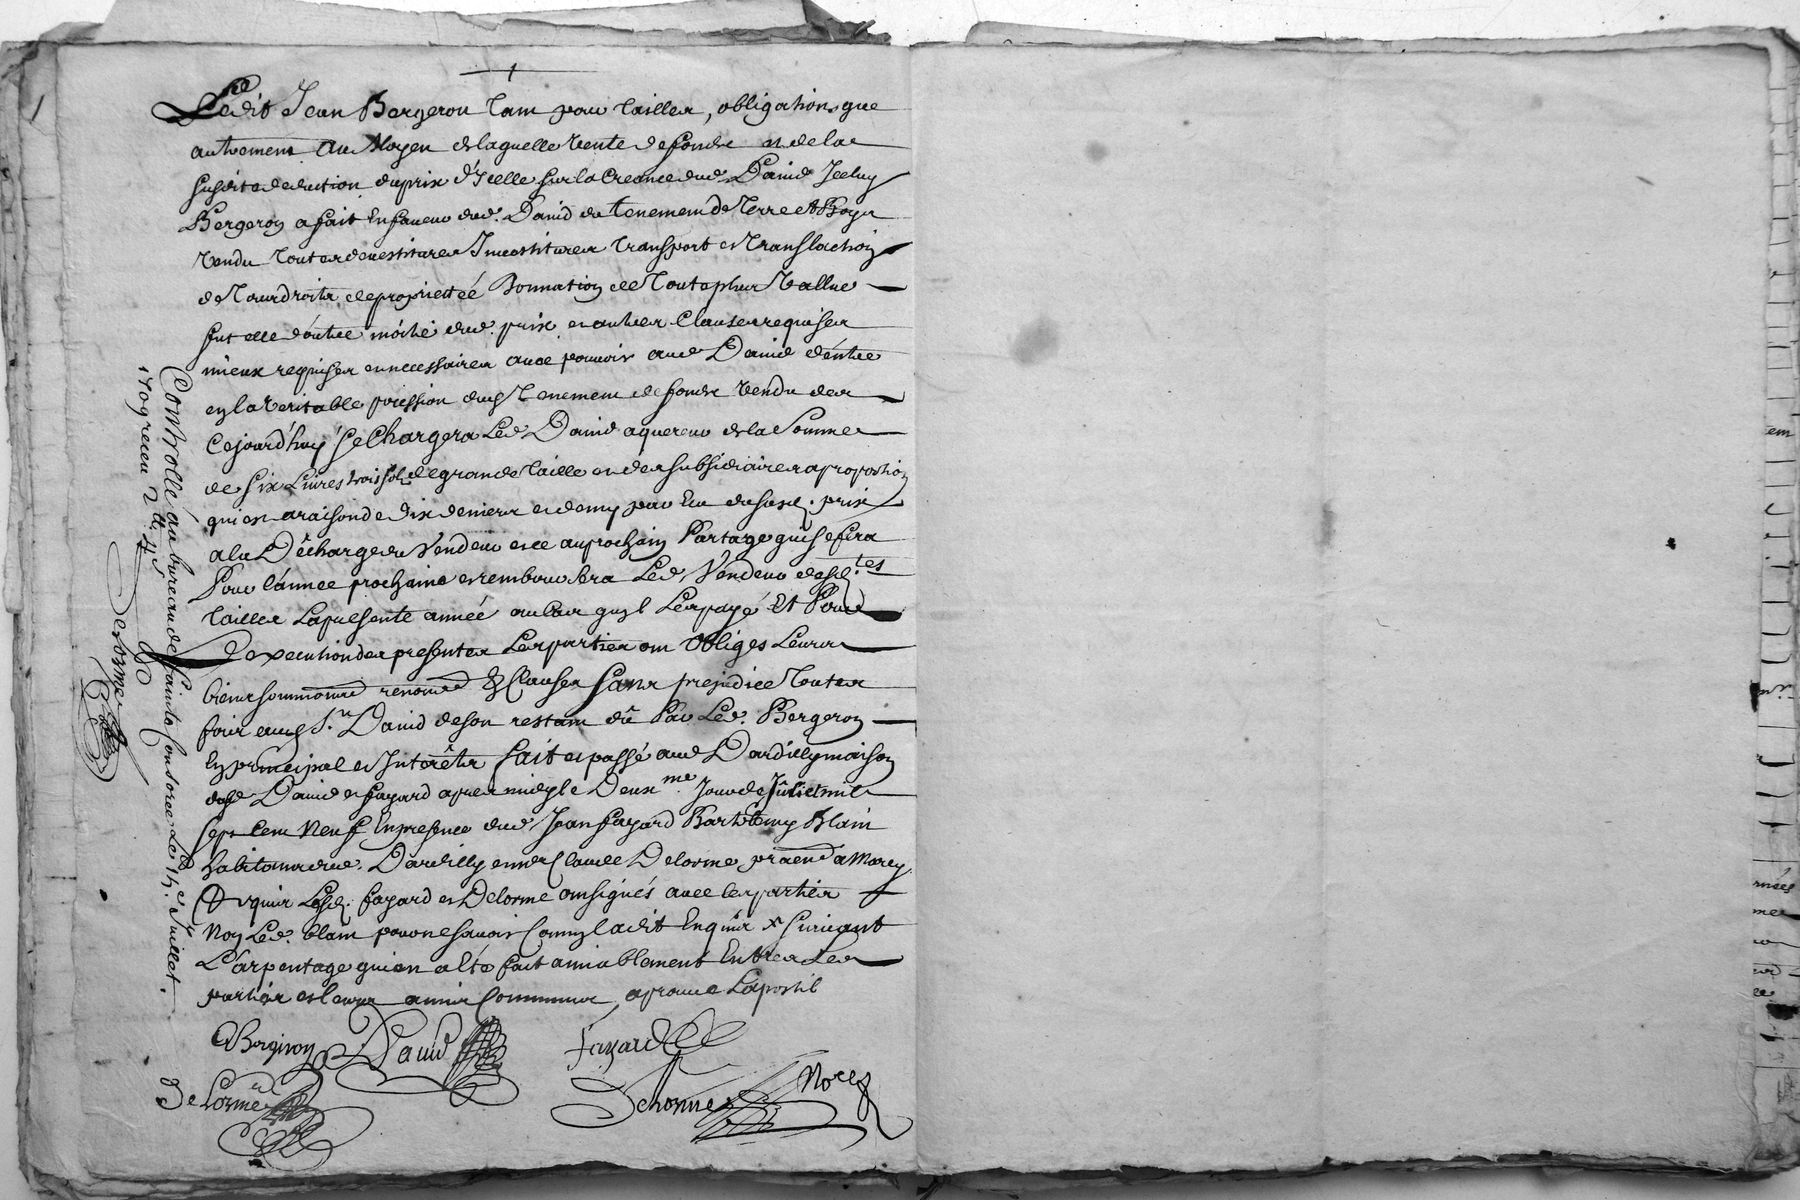 Ledit Jean Bergeron tant pour tailles, obligations que
autrement au Moyen de laquelle vente de fondz et de la
susdite deduction du prix d'Icelle sur la Creance dud. David Jceluy
Bergeron a fait En faveur dud. David du tenement de terre et Boys
vendu toutes devestitures Jnvestitures transport et translation
de tous droits de proprietté Donnation de toute plus vallue
fut elle d'outre moitié dud. prix et autres Clauses requises
mieux requises et necessaires avec pouvoir aud. David d'entrer
en la veritable possession dud. tenement de fondz vendu des
Cejourd'huy se Chargera Led. David aquereur de la Somme
de six Livres trois sols de grande taille et des subsidiaires a proportion
qui est a raison de dix deniers et demy pour Ecu du susd. prix
a la Décharge du Vendeur et ce au prochain Partage qui se fera
Pour l'année prochaine et remboursera Led. Vendeur desd.tes
tailles La presente année au Cas qu'il Les paye Et Pour
L'execution des presentes Les parties ont Obligés Leurs
biens soumissions renon.ons Et Clauses sans prejudice toutes
fois aud. S.r David de son restant dû Par Led. Bergeron
En principal et Interêts fait et passé aud. Dardilly maison
desd. David et fayard apres midy le Deux.me Jour de Juliet mil
sept Cent Neuf En presence dud. Jean fayard Barthelemy Blain
habitans dud. Dardilly et de Claude Delorme prat. a Morey
Et quis Lesd. fayard et Delorme ont signés avec les parties
Non Led. blain pour ne savoir Comm'il a dit Enquis x suivant
L'arpentage qui en a Eté fait amiablement Entres Les
parties et leurs amis Communs aprouve Lapostil
CBergeron David fayard
Delorme Delorme Morel
Controllé au bureau de Sainte Consorce Le 15.e Juillet
1709 receu 2 ℔ 4 s
Delorme